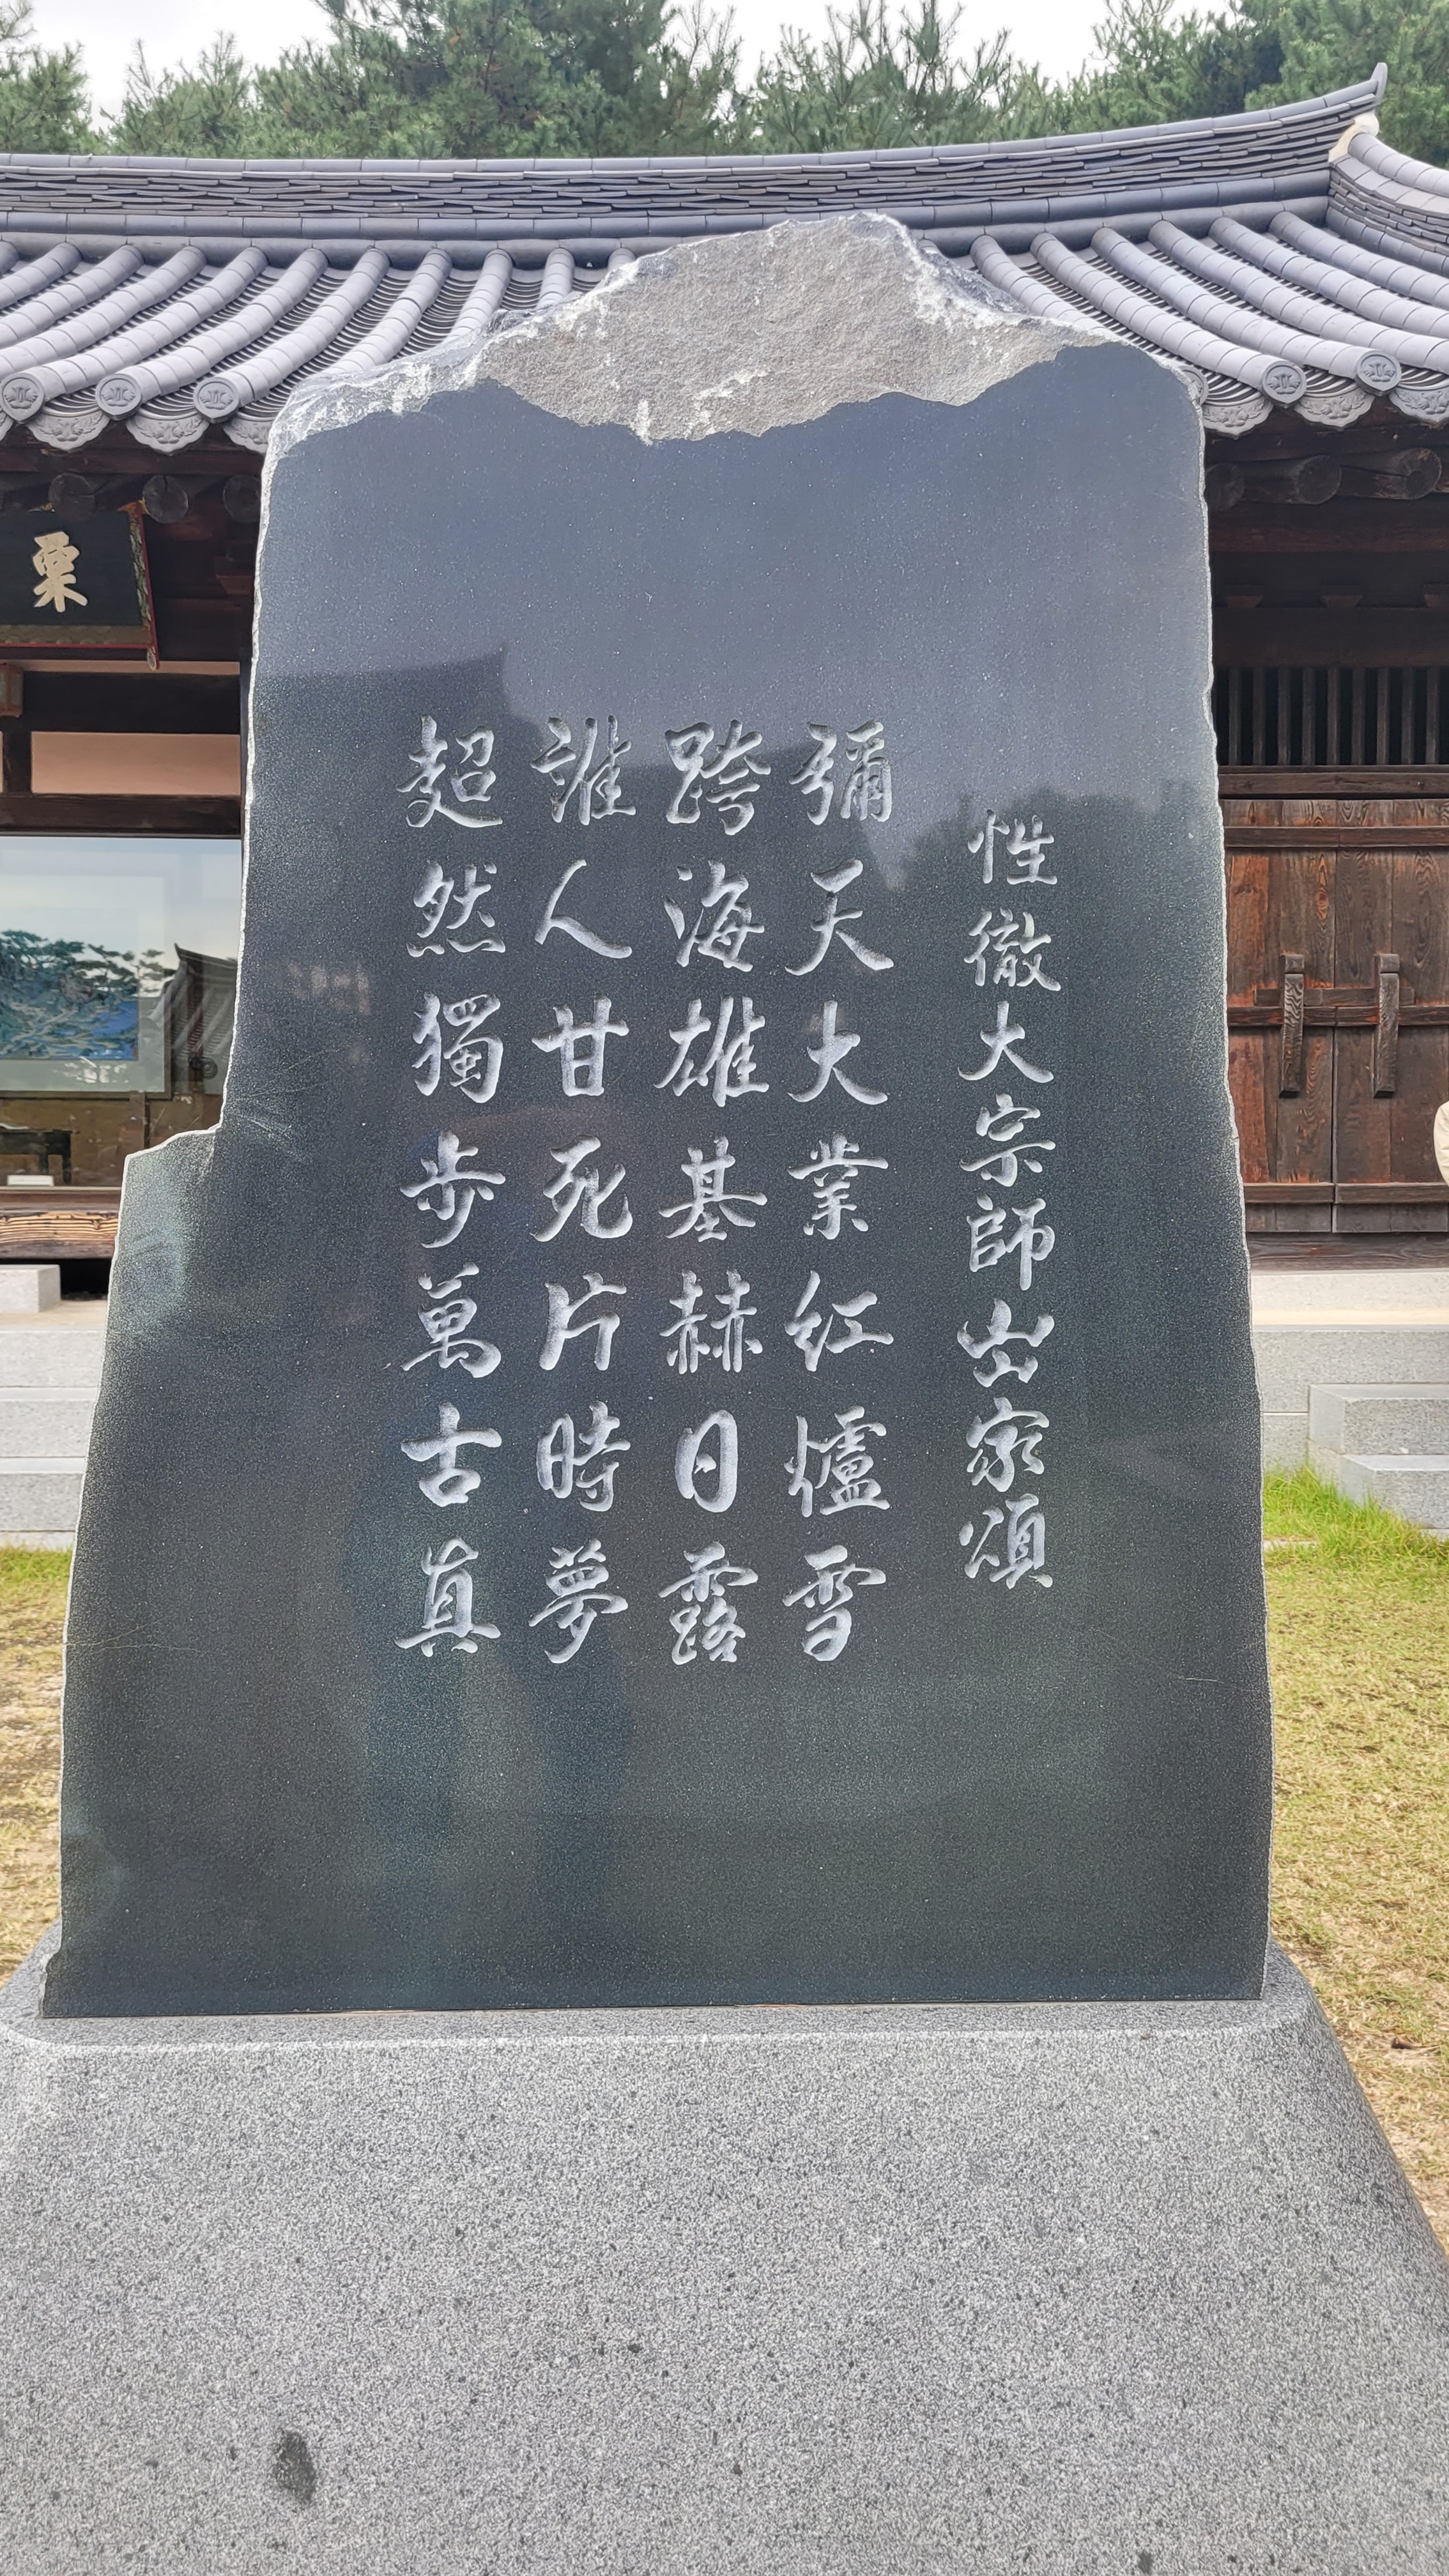 性徹大宗師出家頌
彌天大業紅爐雪
跨海雄基赫日露
誰人甘死片時夢
超然獨步萬古真
栗